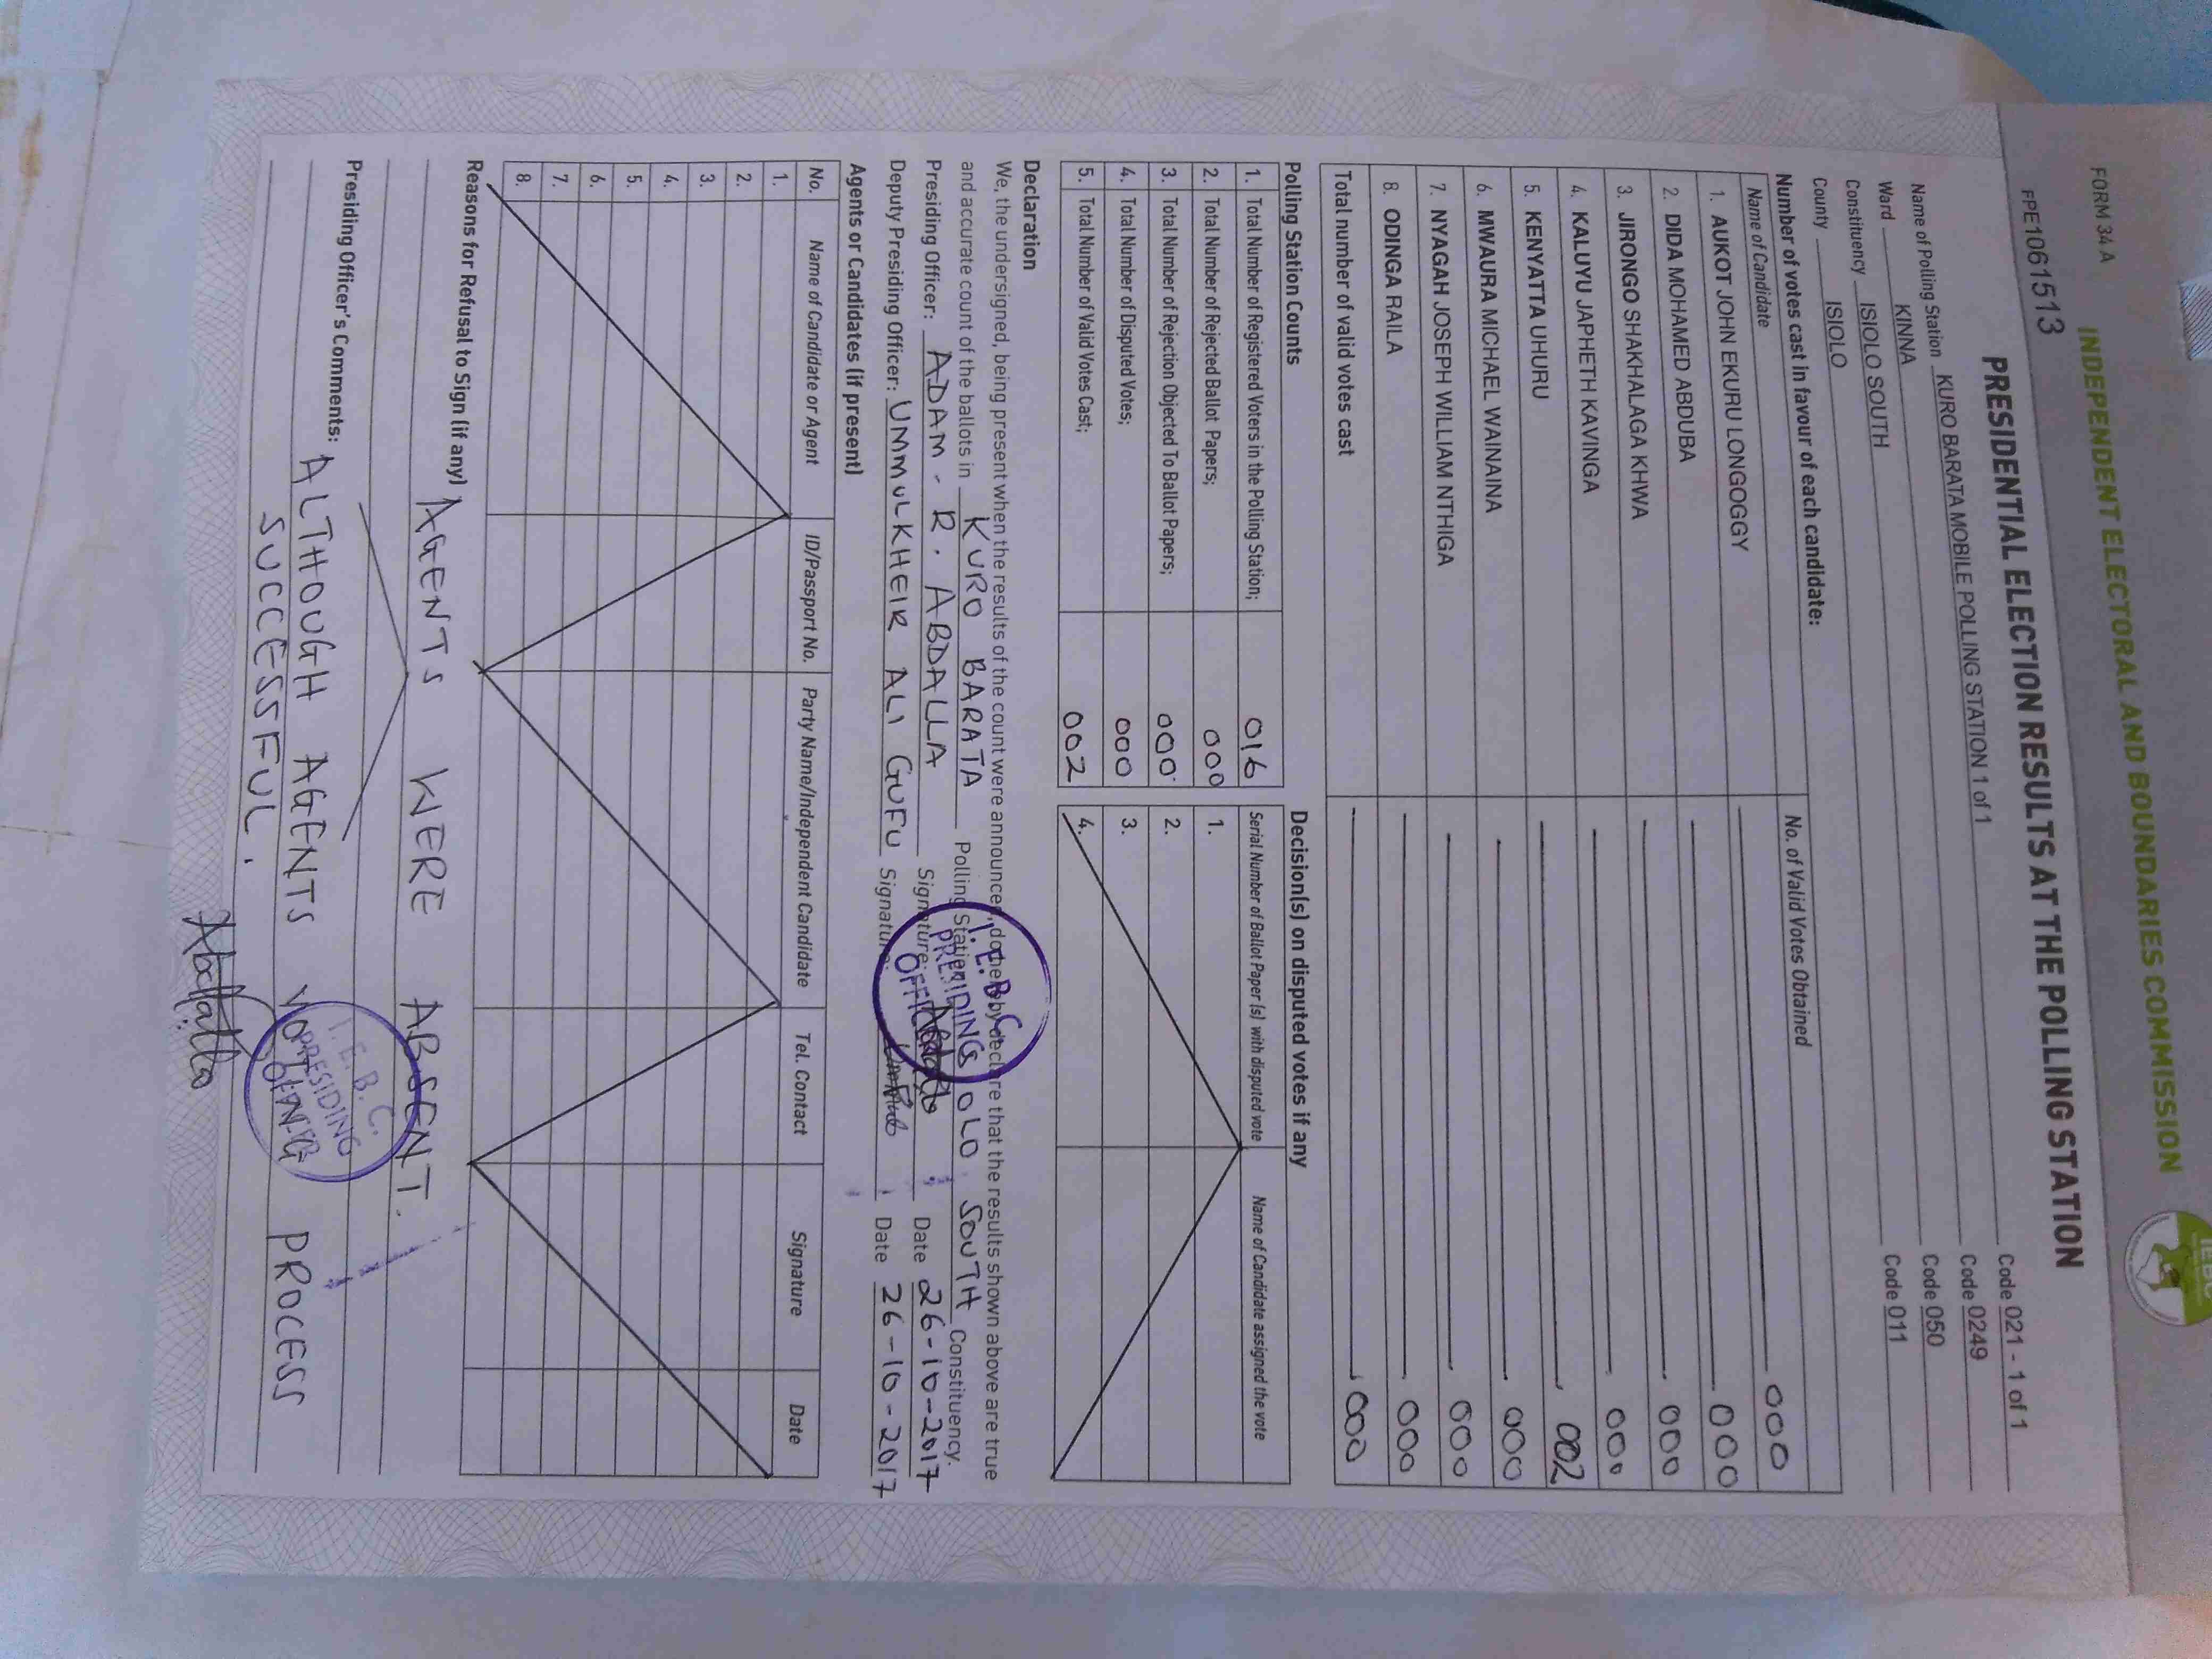 FORM 34 A
INDEPENDENT ELECTORAL AND BOUNDARIES COMMISSION
FPE1061513
PRESIDENTIAL ELECTION RESULTS AT THE POLLING STATION
Name of Polling Station KURO BARATA MOBILE POLLING STATION 1 of 1 Code 021 - 1 of 1
Ward KINNA Code 0249
Constituency ISIOLO SOUTH Code 050
County ISIOLO Code 011
Number of votes cast in favour of each candidate:
Name of Candidate No. of Valid Votes Obtained
1. AUKOT JOHN EKURU LONGOGGY 000
2. DIDA MOHAMED ABDUBA 000
3. JIRONGO SHAKHALAGA KHWA 000
4. KALUYU JAPHETH KAVINGA 000
5. KENYATTA UHURU 002
6. MWAURA MICHAEL WAINAINA 000
7. NYAGAH JOSEPH WILLIAM NTHIGA 000
8. ODINGA RAILA 000
Total number of valid votes cast 000
Polling Station Counts
1. Total Number of Registered Voters in the Polling Station; 016
2. Total Number of Rejected Ballot Papers; 000
3. Total Number of Rejection Objected To Ballot Papers; 000
4. Total Number of Disputed Votes; 000
5. Total Number of Valid Votes Cast; 002
Decision(s) on disputed votes if any
Serial Number of Ballot Paper (s) with disputed vote Name of Candidate assigned the vote
1.
2.
3.
4.
Declaration
We, the undersigned, being present when the results of the count were announced, do hereby declare that the results shown above are true
and accurate count of the ballots in KURO BARATA Polling Station ISIOLO SOUTH Constituency.
Presiding Officer: ADAM - R. ABDALLA Signature: Date 26-10-2017
Deputy Presiding Officer: UMMULKHEIR ALI GUFU Signature: Date 26-10-2017
I. E. B. C.
PRESIDING
OFFICER
Agents or Candidates (if present)
No. Name of Candidate or Agent ID/Passport No. Party Name/Independent Candidate Tel. Contact Signature Date
1.
2.
3.
4.
5.
6.
7.
8.
Reasons for Refusal to Sign (if any)
AGENTS WERE ABSENT.
Presiding Officer's Comments:
ALTHOUGH AGENTS VOTING PROCESS
SUCCESSFUL.
I. E. B. C.
PRESIDING
Abdalla